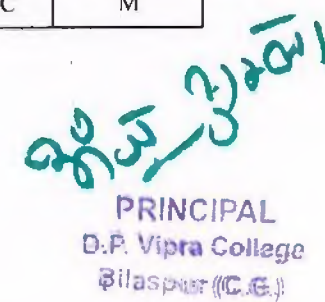 C M
PRINCIPAL
D.P. Vipra College
Bilaspur (C.G.)